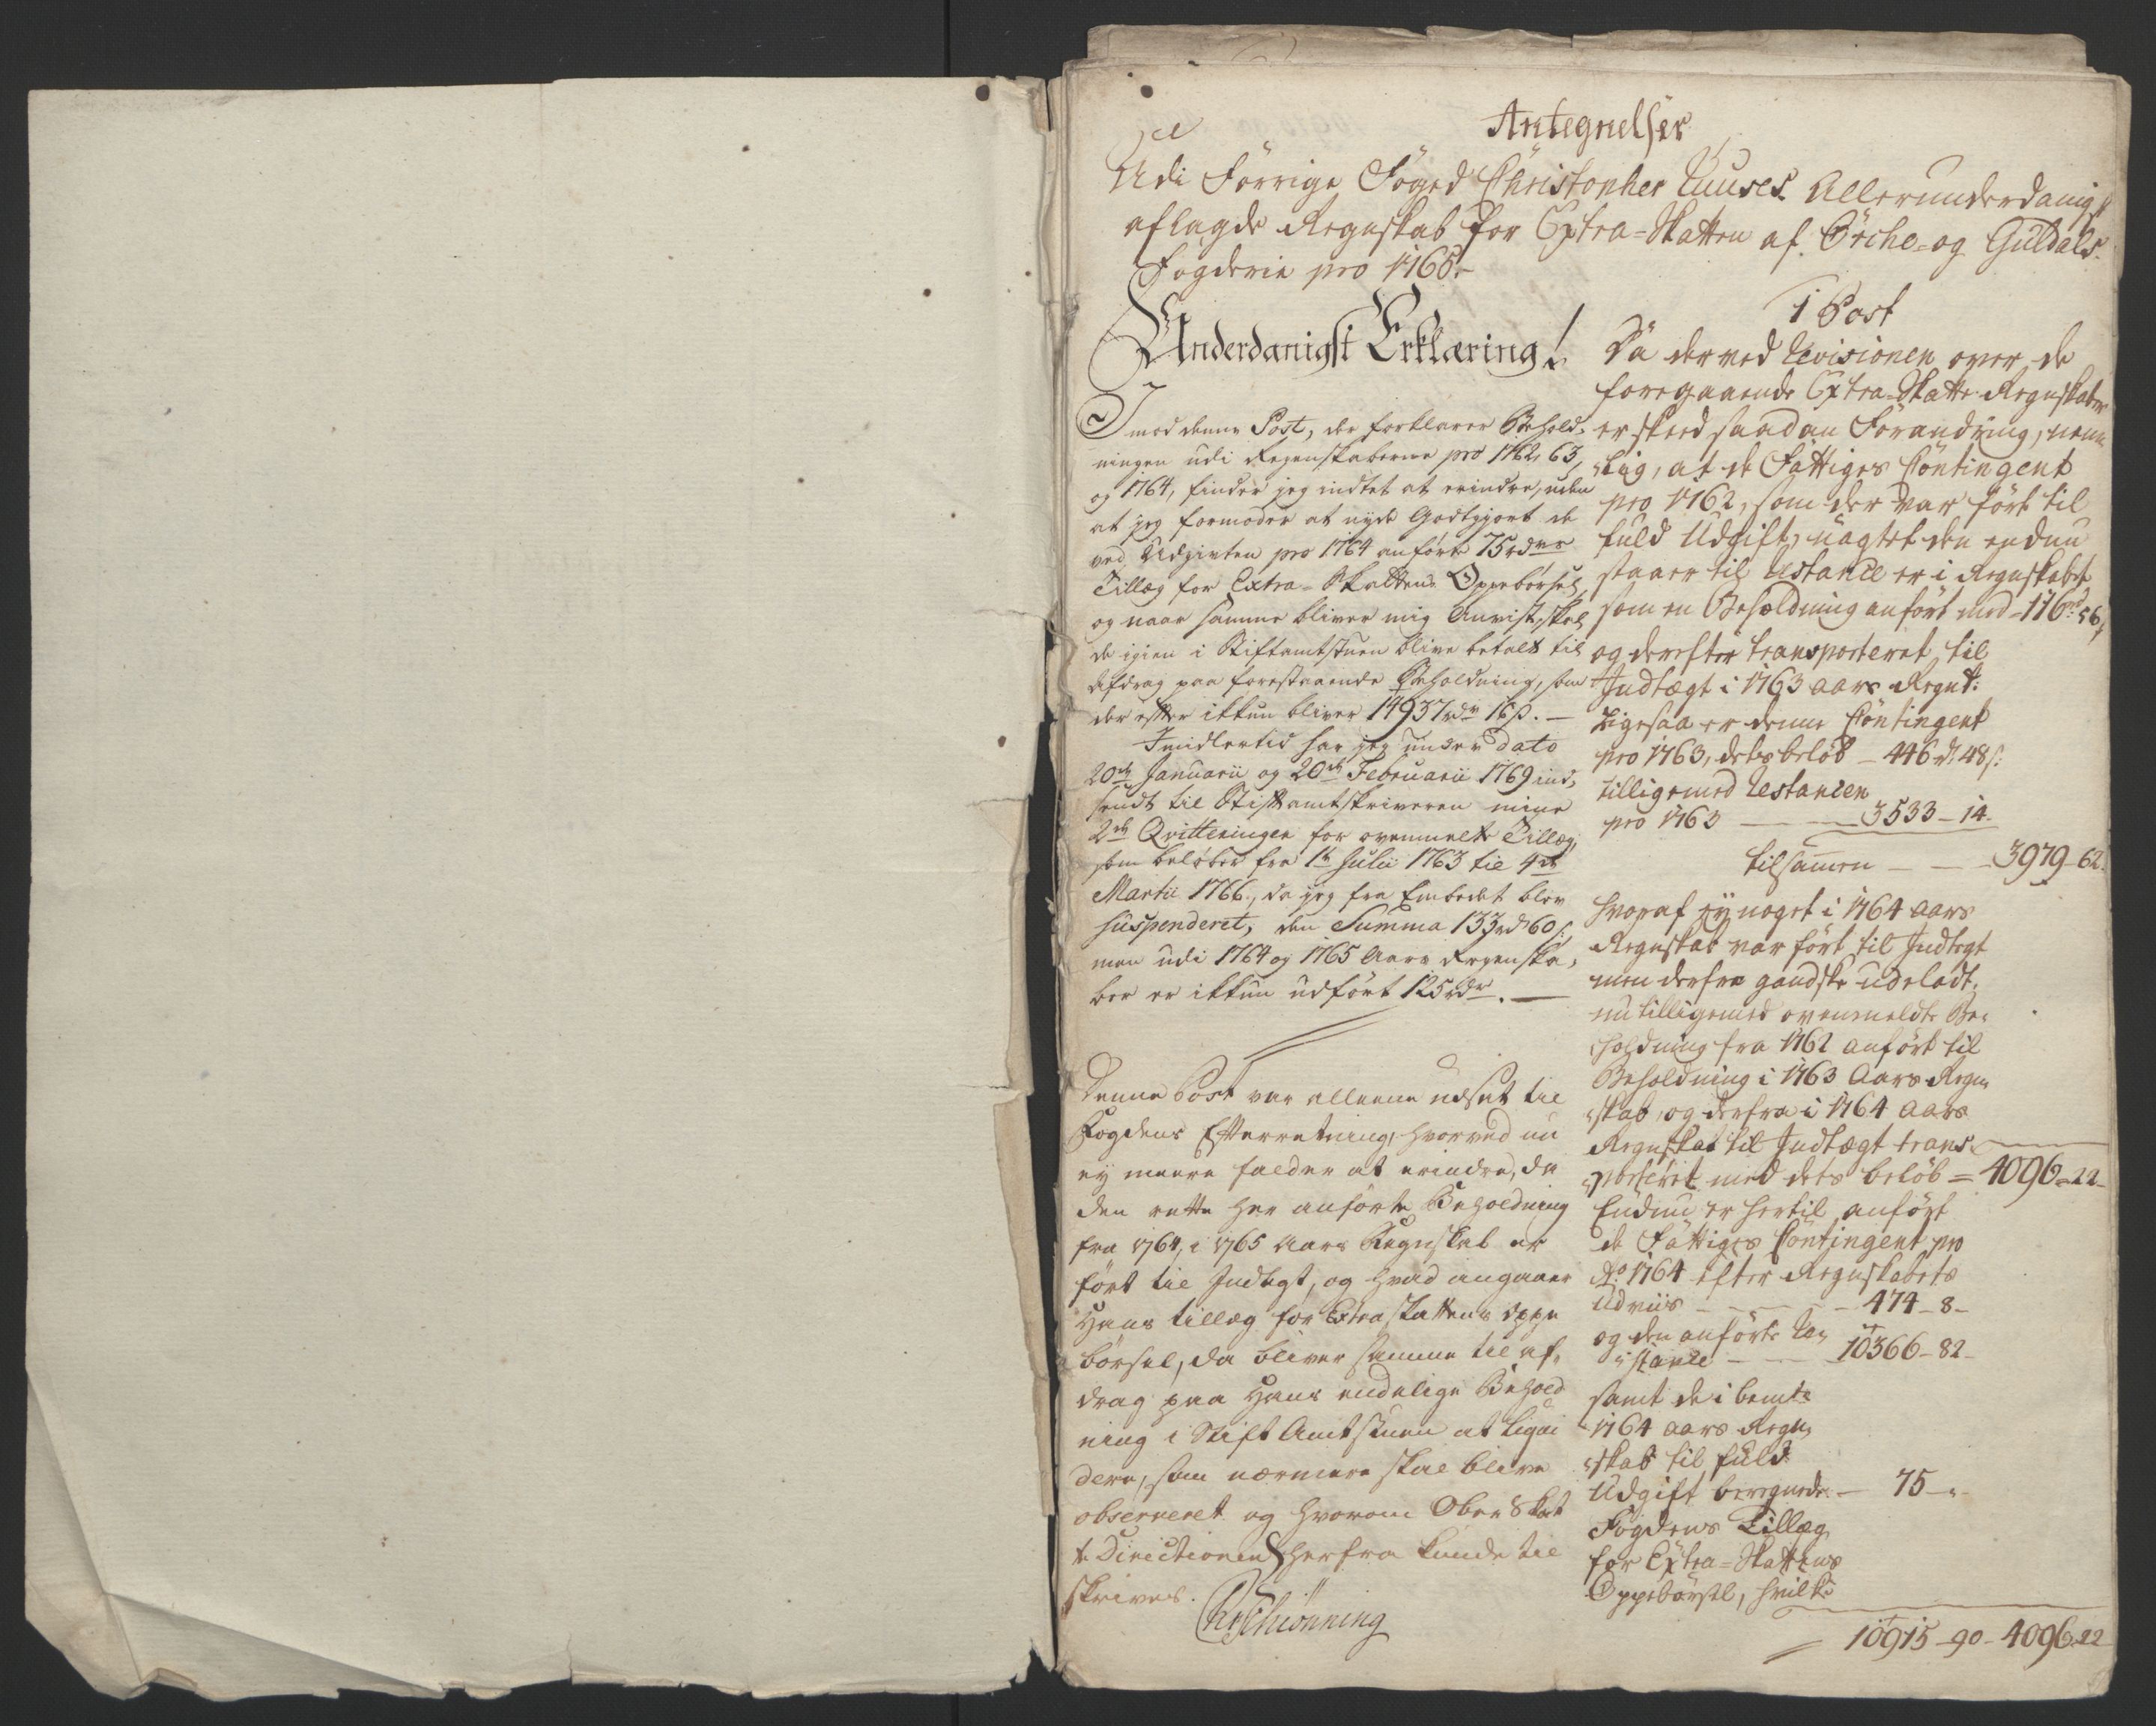 Antegnelser
Udi Forrige Foged Christopher Ruuses Allerunderdanigst
aflagde Regnskab for Extra-Skatten af Örche- og Guldals
Fogderie pro 1765.
Underdanigst Erklæring!
Imod denne Post, der forklarer Behold-
ningen udi Regenskaberne pro 1762, 63,
og 1764, finder jeg indtet at erindre, uden
at jeg formoder at nyde Godtgiort de
ved Udgivten pro 1764 anförte 75 rdr
Tillæg for Extra-Skattens Oppebørsel,
og naar samme bliver mig Anvist, skal
de igien i Stiftamtstuen blive betalt til
Afdrag paa forestaaende Beholdning, som
der efter ikkun bliver 14937 rdr 16 s. —
Imidlertid har jeg under dato
20de Januarii og 20de Februarii 1769 ind-
sendt til Stiftamtskriveren mine
2de Qvitteringer for ovenmelte Tillæg,
som beløber fra 1te Julii 1763 til 4de
Martii 1766, da jeg fra Embedet blev
suspenderet, den Summa 133 rd 60 s,
men udi 1764 og 1765 Aars Regenska-
ber er ikkun udfört 125 rdr. —
Denne Post var alleene udsat til
Fogdens Efterretning, hvorved nu
ey meere falder at erindre, da
den rette her anförte Beholdning
fra 1764, i 1765 Aars Regnskab er
fört til Indtegt, og hvad angaaer
Hans tillæg for Extraskattens Oppe
börsel, da bliver samme til af-
drag paa Hans endelige Behold
ning i Stift Amtstuen at liqvi
dere, som nærmere skal blive
observeret og hvorom Ober Skat
te Directionen herfra kunde til
skrives.
Schiønning
1 Post
Da der ved Revisionen over de
foregaaende Extra-Skatte-Regnskaber
er skeed saadan Forandring, nem-
lig, at de Fattiges Contingent
pro 1762, som der var fört til
fuld Udgift, uagtet den endnu
staaer til Restance er i Regnskabet
som en Beholdning anfört med - 116 rd 56 s
og derefter transporteret til
Indtægt i 1763 aars Regnsk:
Ligesaa er denne Contingent
pro 1763, dets beløb — 446 rd 48 s:
tilligemed Restancen
pro 1763 — 3533 - 14 -
tilsammen — 3979 - 62.
hvoraf ey noget i 1764 aars
Regnskab var fört til Indtegt
men derfra gandske udeladt,
nu tilligemed ovenmeldte Be-
holdning fra 1762 anfört til
Beholdning i 1763 Aars Regn-
skab, og derfra i 1764 aars
Regnskab til Indtægt trans-
porteret med dets beløb = 4096 - 22 -
Endnu er hertil anfört
de Fattiges Contingent pro
Ao 1764 efter Regnskabets
Udviis — 474 - 8 -
og den anförte Re-
stance — 10366 - 82 -
samt de i bemte
1764 aars Regn-
skab til fuld
Udgift beregnede — 75 - "
Fogdens Tillæg
for Extra-Skattens
Oppebörsel, hvilke
10915 - 90 - 4096 - 22